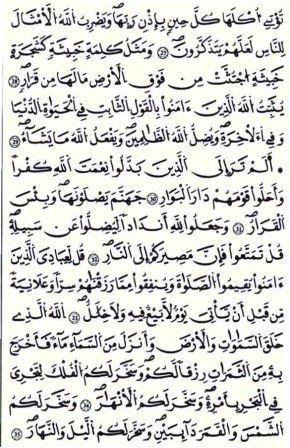 تُؤْتِي أُكْلَهَا كُلَّ حِينٍ بِإِذْنِ رَبِّهَا وَيَضْرِبُ اللَّهُ الْأَمْثَالَ
لِلنَّاسِ لَعَلَّهُمْ يَتَذَكَّرُونَ ۝27 وَمَثَلُ كَلِمَةٍ خَبِيثَةٍ كَشَجَرَةٍ
خَبِيثَةٍ اجْتُثَّتْ مِن فَوْقِ الْأَرْضِ مَا لَهَا مِن قَرَارٍ ۝28
يُثَبِّتُ اللَّهُ الَّذِينَ ءَامَنُوا بِالْقَوْلِ الثَّابِتِ فِي الْحَيَوٰةِ الدُّنْيَا
وَفِي الْأَخِرَةِ وَيُضِلُّ اللَّهُ الظَّٰلِمِينَ وَيَفْعَلُ اللَّهُ مَا يَشَاءُ ۝29
* أَلَمْ تَرَ إِلَى الَّذِينَ بَدَّلُوا نِعْمَتَ اللَّهِ كُفْرًا
وَأَحَلُّوا قَوْمَهُمْ دَارَ الْبَوَارِ ۝30 جَهَنَّمَ يَصْلَوْنَهَا وَبِيسَ
الْقَرَارُ ۝31 وَجَعَلُوا لِلَّهِ أَندَادًا لِّيُضِلُّوا عَن سَبِيلِهِ
قُلْ تَمَتَّعُوا فَإِنَّ مَصِيرَكُمْ إِلَى النَّارِ ۝32 قُل لِّعِبَادِيَ الَّذِينَ
ءَامَنُوا يُقِيمُوا الصَّلَوٰةَ وَيُنفِقُوا مِمَّا رَزَقْنَٰهُمْ سِرًّا وَعَلَانِيَةً
مِّن قَبْلِ أَن يَأْتِيَ يَوْمٌ لَّا بَيْعٌ فِيهِ وَلَا خِلَٰلٌ ۝33 اللَّهُ الَّذِي
خَلَقَ السَّمَٰوَٰتِ وَالْأَرْضَ وَأَنزَلَ مِنَ السَّمَاءِ مَاءً فَأَخْرَجَ
بِهِ مِنَ الثَّمَرَٰتِ رِزْقًا لَّكُمْ وَسَخَّرَ لَكُمُ الْفُلْكَ لِتَجْرِيَ
فِي الْبَحْرِ بِأَمْرِهِ وَسَخَّرَ لَكُمُ الْأَنْهَٰرَ ۝34 وَسَخَّرَ لَكُمُ
الشَّمْسَ وَالْقَمَرَ دَائِبَيْنِ وَسَخَّرَ لَكُمُ اللَّيْلَ وَالنَّهَارَ ۝35